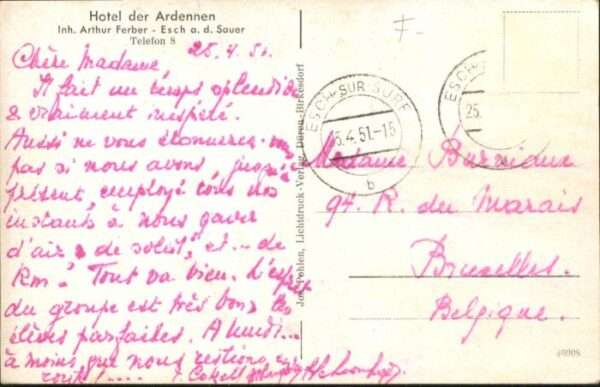 Hotel der Ardennen
Inh. Arthur Ferber - Esch a. d. Sauer
Telefon 8
25.4.51.
Chère Madame
Il fait un temps splendide
& vraiment inespéré.
Aussi ne vous étonnerez-vous
pas si nous avons, jusqu'à
présent, employé tous nos
instants à nous gaver
d'air, de soleil, et... de
Km! Tout va bien. L'esprit
du groupe est très bon, les
élèves parfaites. A lundi...
à moins que nous restions en
route!....
Jos. Pohlen, Lichtdruck-Verlag, Düren-Birkesdorf
ESCH-SUR-SÛRE
25.4.51.-15
b
ESCH-
25.
Madame
94. R. du Marais
Bruxelles.
Belgique.